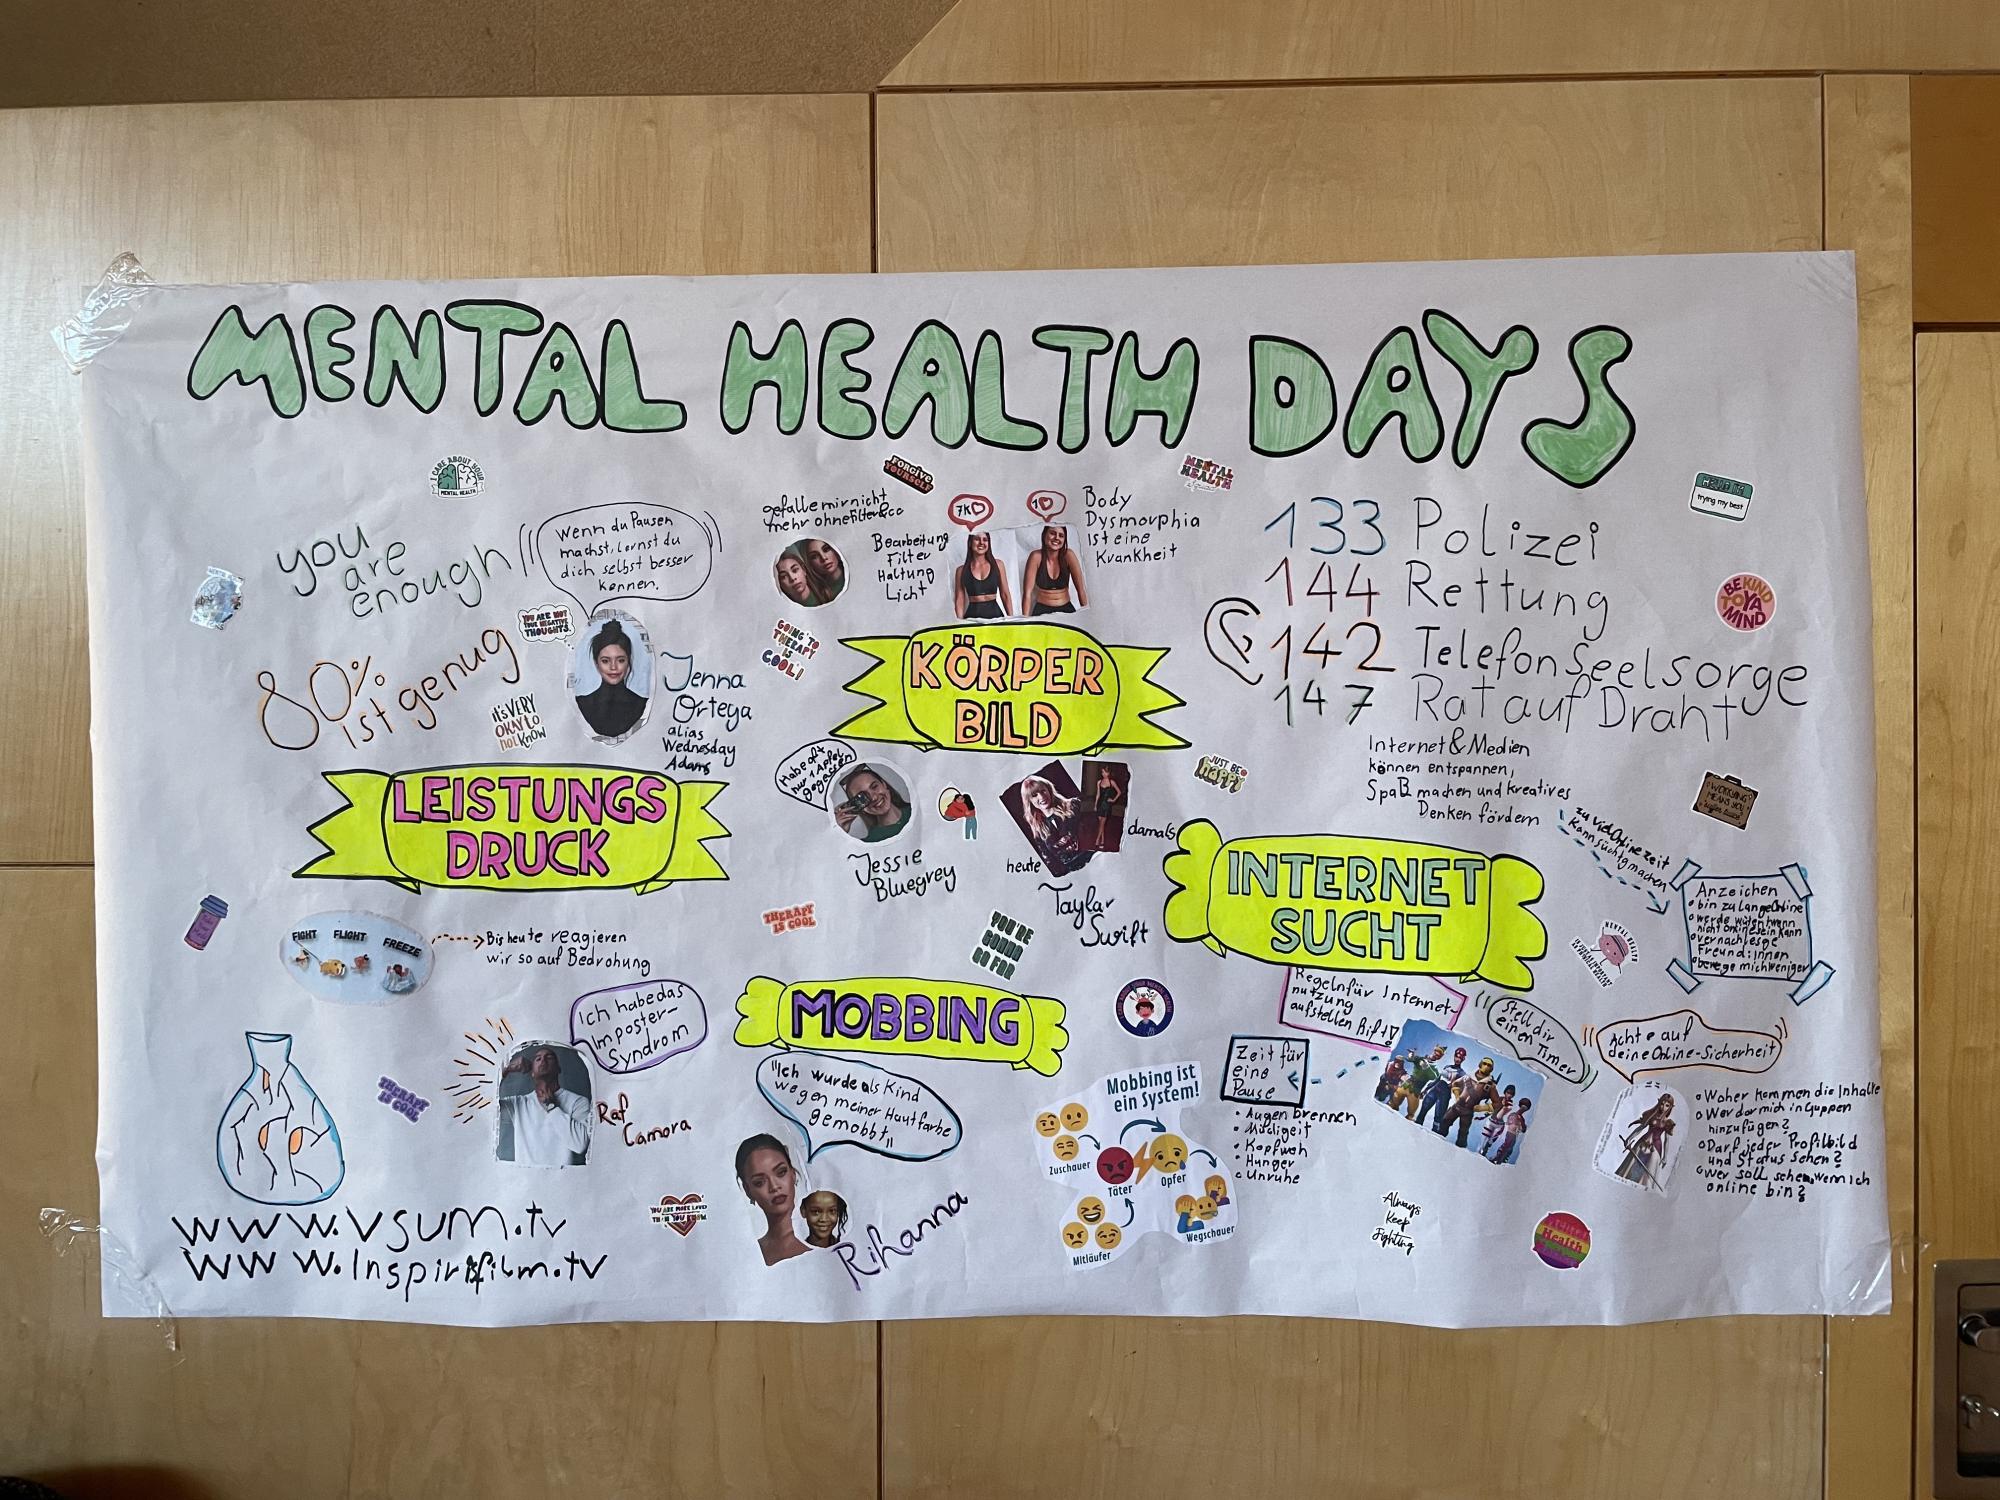 MENTAL HEALTH DAYS
I CARE ABOUT YOUR
MENTAL HEALTH
you
are
enough
Wenn du Pausen
machst, lernst du
dich selbst besser
kennen.
YOU ARE NOT
YOUR NEGATIVE
THOUGHTS.
80%
ist genug
IT'S VERY
OKAY TO
not KNOW
Jenna
Ortega
alias
Wednesday
Adams
LEISTUNGS
DRUCK
FIGHT
FLIGHT
FREEZE
Bis heute reagieren
wir so auf Bedrohung
Ich habe das
Imposter-
Syndrom
Raf
Camora
THERAPY
IS COOL
www.vsum.tv
www.Inspirisfilm.tv
FORGIVE
YOURSELF
MENTAL
HEALTH
gefalle mir nicht
mehr ohne Filter&co
Bearbeitung
Filter
Haltung
Licht
7K
1
Body
Dysmorphia
ist eine
Krankheit
GOING TO
THERAPY
IS
COOL!
KÖRPER
BILD
Habe oft
nur 1 Apfel
gegessen
Jessie
Bluegrey
heute
damals
Taylar
Swift
JUST BE
happy
THERAPY
IS COOL
YOU'RE
GONNA
GO FAR
MOBBING
"Ich wurde als Kind
wegen meiner Hautfarbe
gemobbt"
Rihanna
YOU ARE MORE LOVED
THAN YOU KNOW
Mobbing ist
ein System!
Zuschauer
Täter
Opfer
Mitläufer
Wegschauer
133 Polizei
144 Rettung
142 Telefonseelsorge
147 Rat auf Draht
HELLO I'M
trying my best
BE KIND
TO YA
MIND
Internet & Medien
können entspannen,
Spaß machen und kreatives
Denken fördern
zu viel Onlinezeit
kann süchtig machen
WORRYING
MEANS YOU
INTERNET
SUCHT
Anzeichen
• bin zu lange Online
• werde wütend wenn
nicht online sein kann
• vernachlesge
Freund:innen
• bewege mich weniger
MENTAL HEALTH
Regeln für Internet-
nutzung
aufstellen hilft
Stell dir
einen Timer
Achte auf
deine Online-Sicherheit
Zeit für
eine
Pause
• Augenbrennen
• Müdigeit
• Kopfweh
• Hunger
• Unruhe
• Woher kommen die Inhalte
• Wer darf mich in Guppen
hinzufügen?
• Darf jeder Profilbild
und Status sehen?
• Wer soll sehen, wenn ich
online bin?
Always
Keep
Fighting
Health